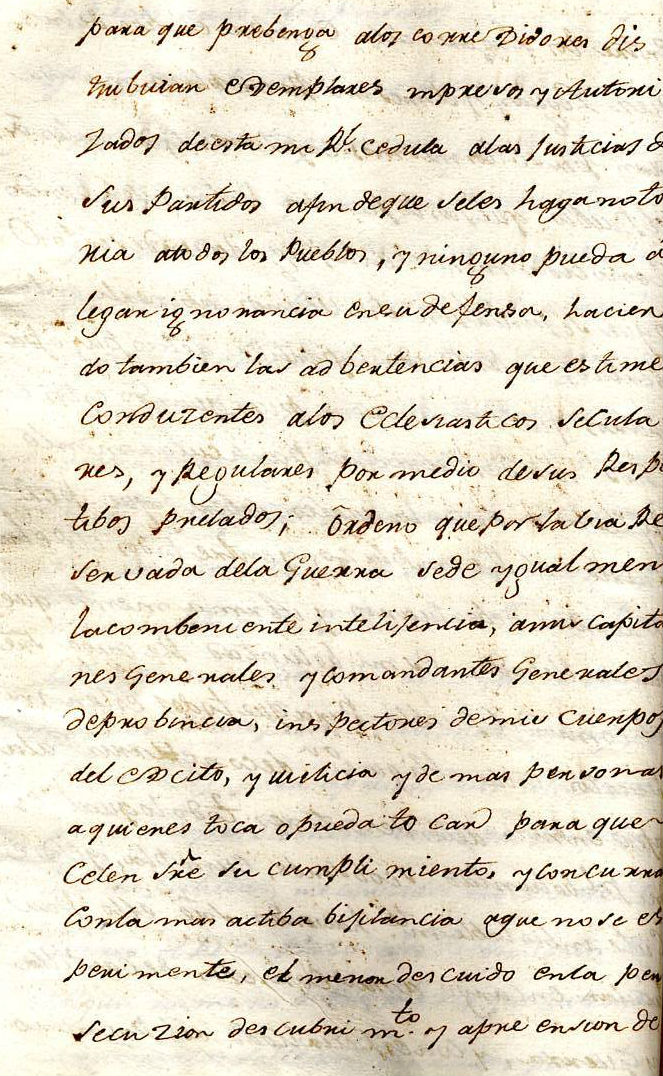 para que prebenga alos corregidores dis
tribuian egemplares impresos y Autori
zados de esta mi Rl. cedula alas Justicias d
sus Partidos afin de que seles haga noto
ria atodos los Pueblos, y ninguno pueda a
legar ignorancia ensu defensa, hacien
do tambien las adbertencias que estime
Conduzentes alos Eclesiasticos secula
res, y Regulares por medio desus Respe
tibos prelados; Ordeno que por la bia Re
servada dela Guerra sede ygualmen
lacombeniente intelijencia, amis capita
nes Generales y comandantes Generales
deprobincia, inspectores demis cuerpos
del egcito, y milicia y demas personas
aquienes toca opueda tocar para que
Celen sre su cumplimiento, y concurra
Conla mas actiba bijilancia aque nose es
perimente, el menor descuido enla per
secuzion descubrimto. y aprension de